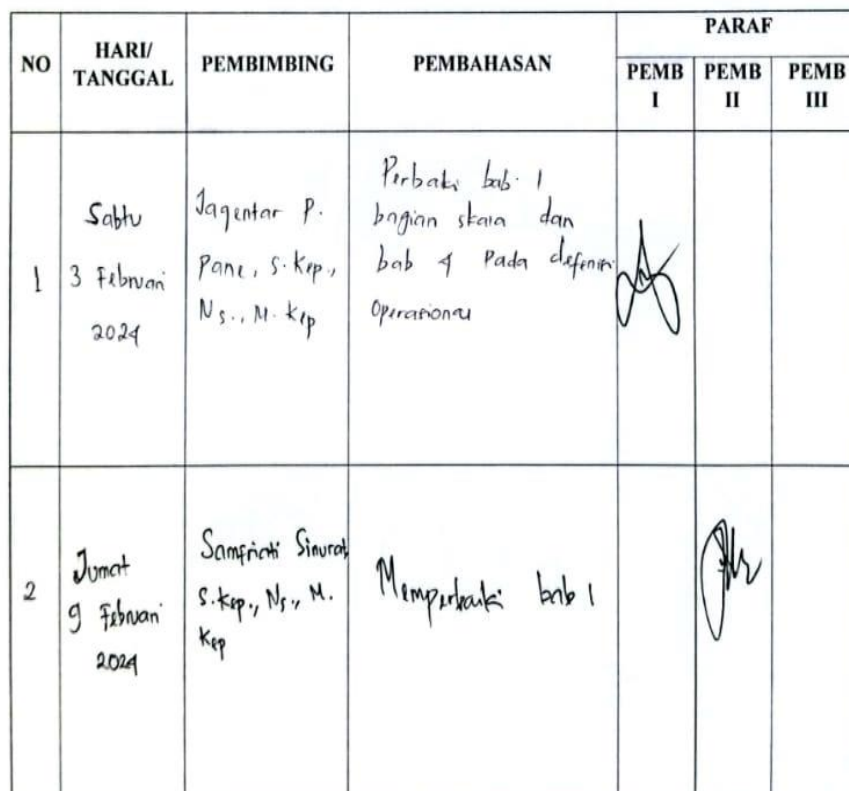 NO
HARI/
TANGGAL
PEMBIMBING
PEMBAHASAN
PARAF
PEMB
I
PEMB
II
PEMB
III
1
Sabtu
3 Februari
2024
Jagentar P.
Pane, S.Kep.,
Ns., M.Kep
Perbaiki bab 1
bagian skala dan
bab 4 Pada defenisi
Operasional
2
Jumat
9 Februari
2024
Samfriati Sinurat,
S.Kep., Ns., M.
Kep
Memperbaiki bab 1